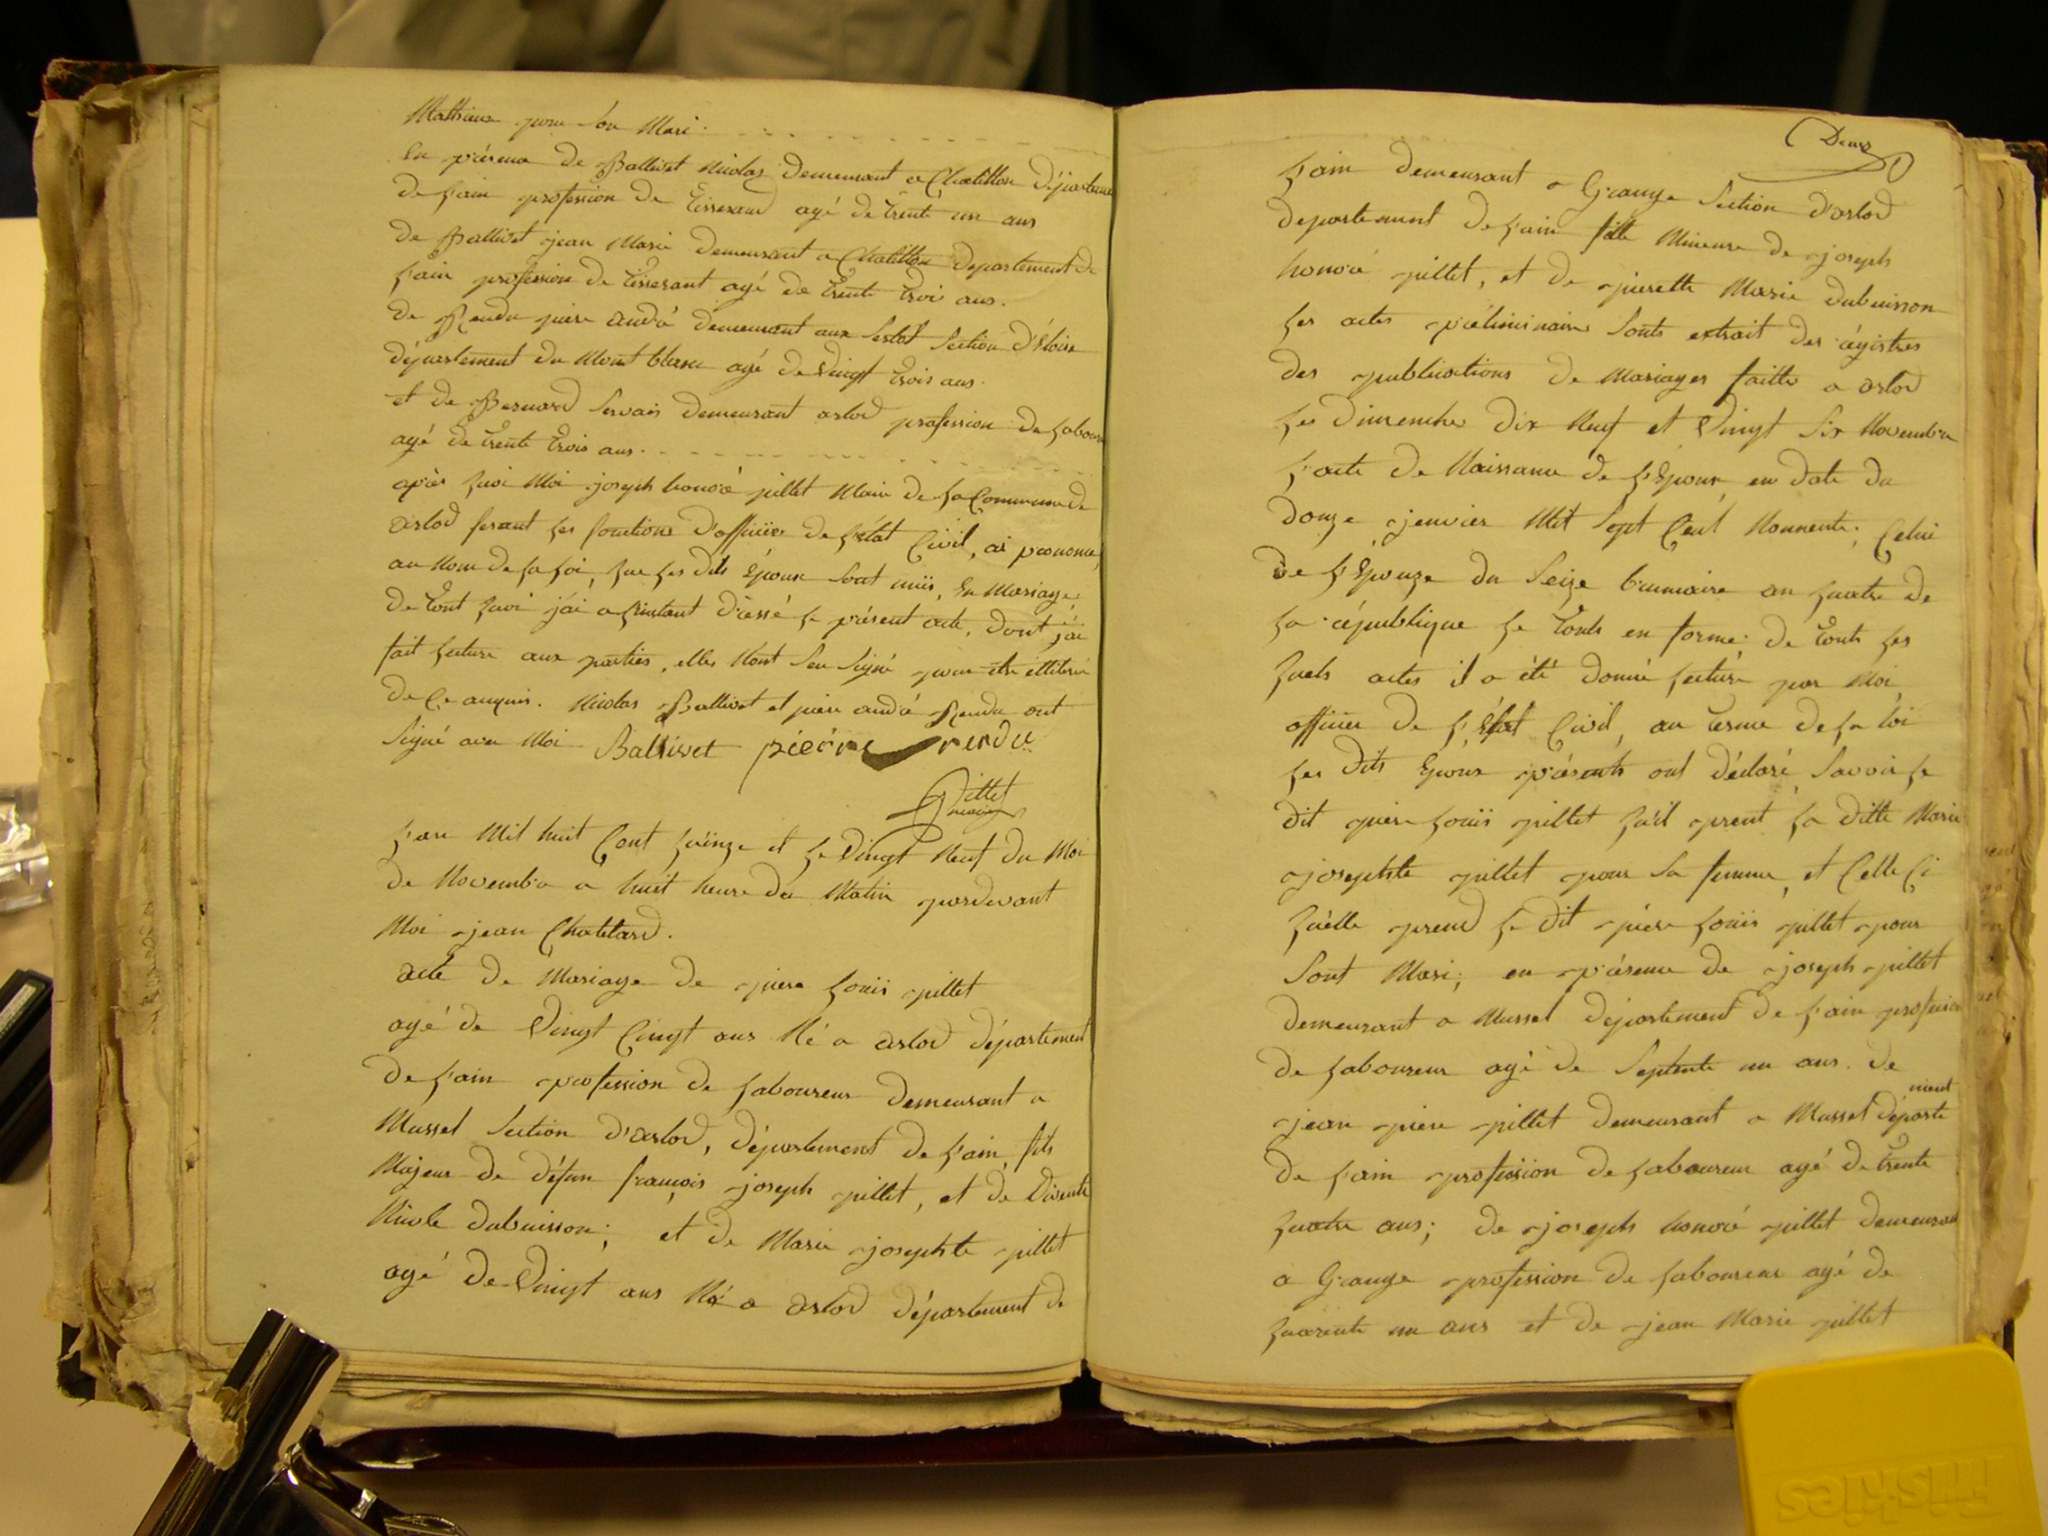 Mathieux pour son Mari.
En présence de Ballivet Nicolas Demeurant a Chatillon départeme
de l'ain profession de Tisserand agé de trente un ans
De Ballivet jean Marie demeurant a Chatillon departement de
l'ain profession de Tisserant agé de trente trois ans.
De Rendu piere andré demeurant aux Section d'Eloise
département du Mont blanc agé de Vingt trois ans.
et de Bernard Servais demeurant arlod profession de Labour
agé de trente trois ans.
après quoi Moi joseph honoré pillet Maire de la Commune de
arlod fesant les fonctions d'officier de l'état Civil, ai prononcé,
au Nom de la loi, que les dits Epoux sont uniis, En Mariage,
de tout quoi j'ai a l'instant dréssé le présent acte, dont j'ai
fait lecture aux parties, elles Nont seu Signé pour etre illiteré
de Ce anquis. Nicolas Ballivet et piere andré Rendu ont
Signé avec Moi Ballivet pierre rendu
Pillet
maire
L'an Mil huit Cent quinze et le Vingt Neuf du Moi
de Novembre a huit heure du Matin pardevant
Moi jean Chatelard.
acte de Mariage de piere Louis pillet
agé de Vingt Cinqt ans Né a arlod département
de l'ain profession de Laboureur demeurant a
Mussel Section d'arlod, département de l'ain, fils
Majeur de défun françois joseph pillet, et de Vivente
Nicole dubuisson; et de Marie josephte pillet
agé de Vingt ans Né a arlod département de
Deux
L'ain demeurant a Grange Section d'arlod
departement de L'ain fille Mineure de joseph
honoré pillet, et de pierette Marie dubuisson
Les actes préliminaires Sonts extrait des régistres
des publications de Mariages faitte a arlod
Les Dimenche dix Neuf et Vingt Six Novembre
L'acte de Naissance de l'Epoux en date du
donze jenvier Mil Sept Cent Nonnente; Celui
de l'Epouze du Seize brumaire an quatre de
la république le touts en forme; de touts les
quels actes il a été donné lecture par Moi
officier de l'état Civil, au terme de la loi
Les Dits Epoux présents ont déclaré Savoir le
dit piere Louis pillet qu'il prent la ditte Marie
josephte pillet pour Sa femme, et Celle Ci
qu'elle prend le dit piere Louis pillet pour
Sont Mari; en présence de joseph pillet
demeurant a Mussel département de l'ain profession
de laboureur agé de Septente un ans. de
jean piere pillet demeurant a Mussel départe
ment
de l'ain profession de laboureur agé de trente
quatre ans; de joseph honoré pillet demeurant
a Grange profession de laboureur agé de
quarente un ans et de jean Marie pillet
fiskies